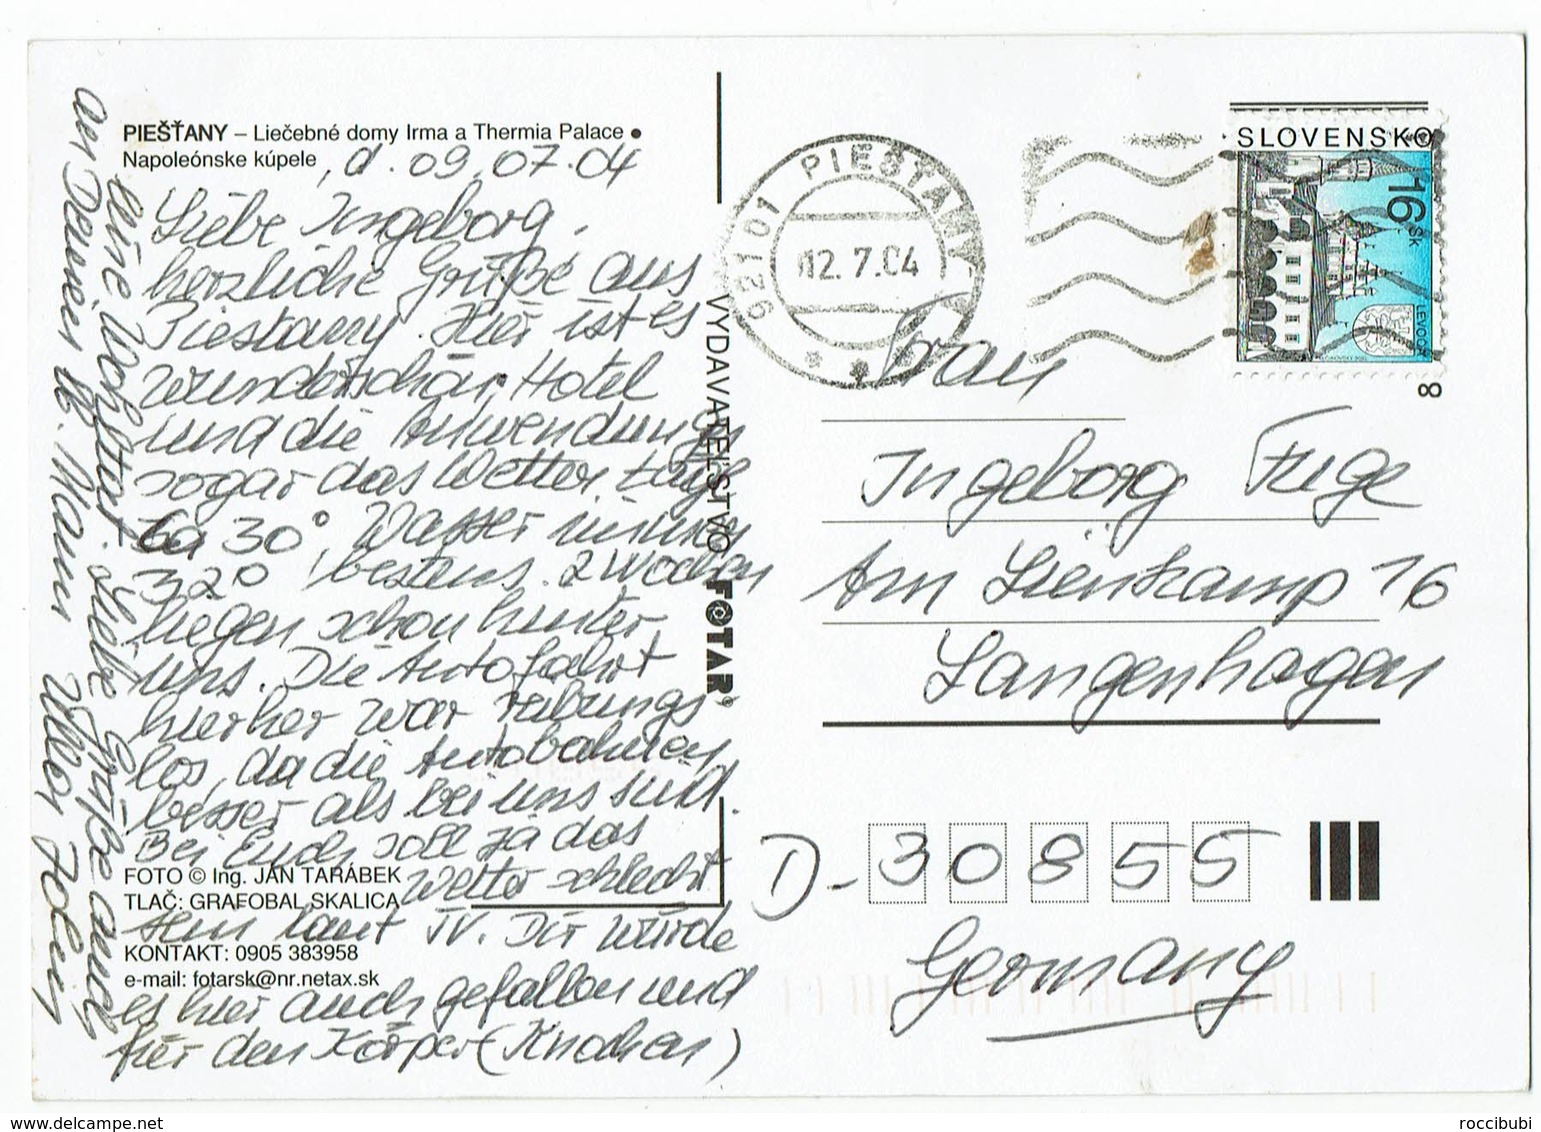 PIEŠŤANY – Liečebné domy Irma a Thermia Palace •
Napoleónske kúpele
, d. 09.07.04
Liebe Ingeborg,
herzliche Grüße aus
Piestany. Hier ist es
wunderschön, Hotel
und die Anwendung,
sogar das Wetter, tägl.
ca 30°, Wasser immer
32° bestens. 2 Wochen
liegen schon hinter
uns. Die Autofahrt
hierher war reibungs-
los, da die Autobahnen
besser als bei uns sind.
Bei Euch soll ja das
Wetter schlecht
sein laut TV. Dir würde
es hier auch gefallen und
für den Körper (Knochen)
eine Wohltat. Liebe Grüße auch
an Deinen lb. Mann
FOTO © Ing. JÁN TARÁBEK
TLAČ: GRAFOBAL SKALICA
KONTAKT: 0905 383958
e-mail: fotarsk@nr.netax.sk
VYDAVATEĽSTVO FOTAR®
921 01 PIEŠŤANY
12.7.04
SLOVENSKO
16 Sk
LEVOČA
8
Frau
Ingeborg Fuge
Am Lienkamp 16
Langenhagen
D-30855
Germany
roccibubi